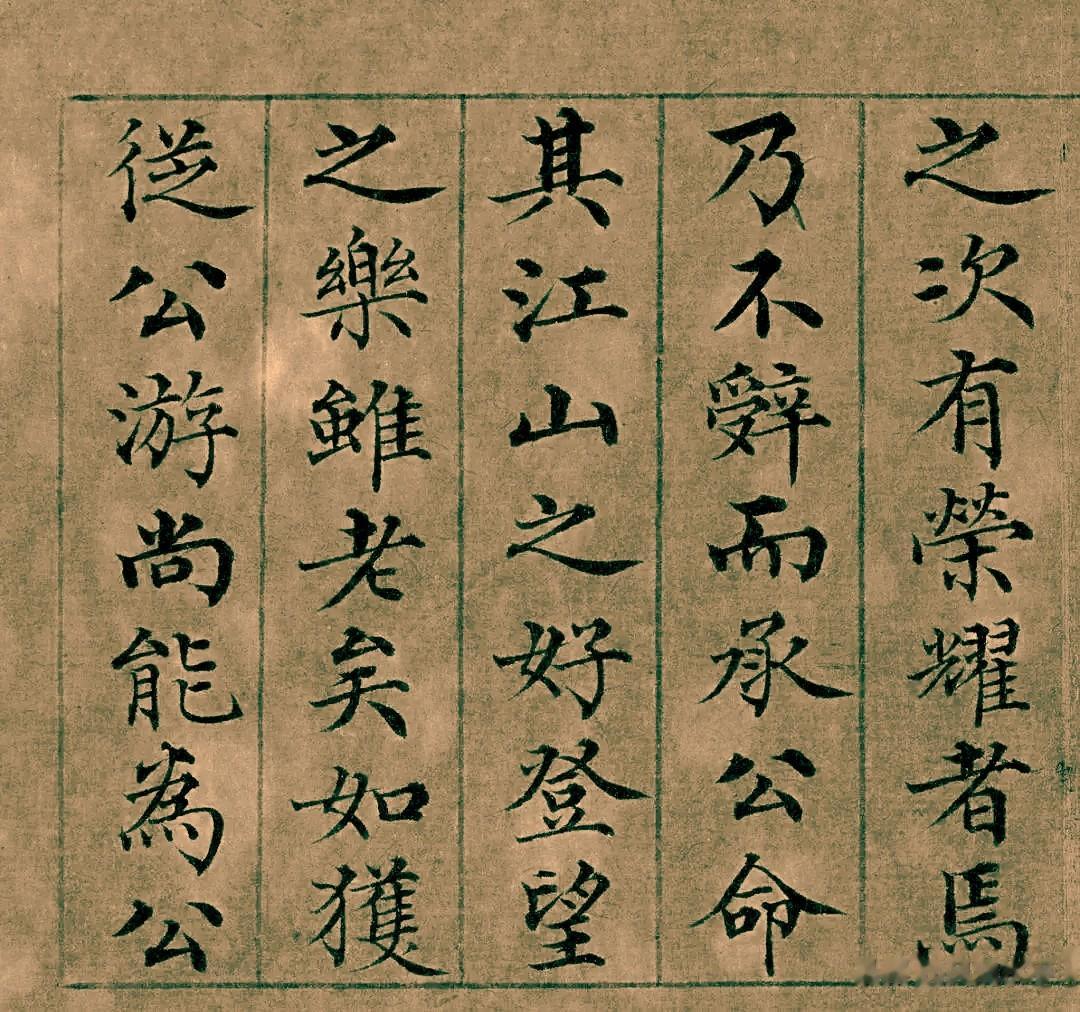 之次有榮耀者焉
乃不辭而承公命
其江山之好登望
之樂雖老矣如獲
從公游尚能為公